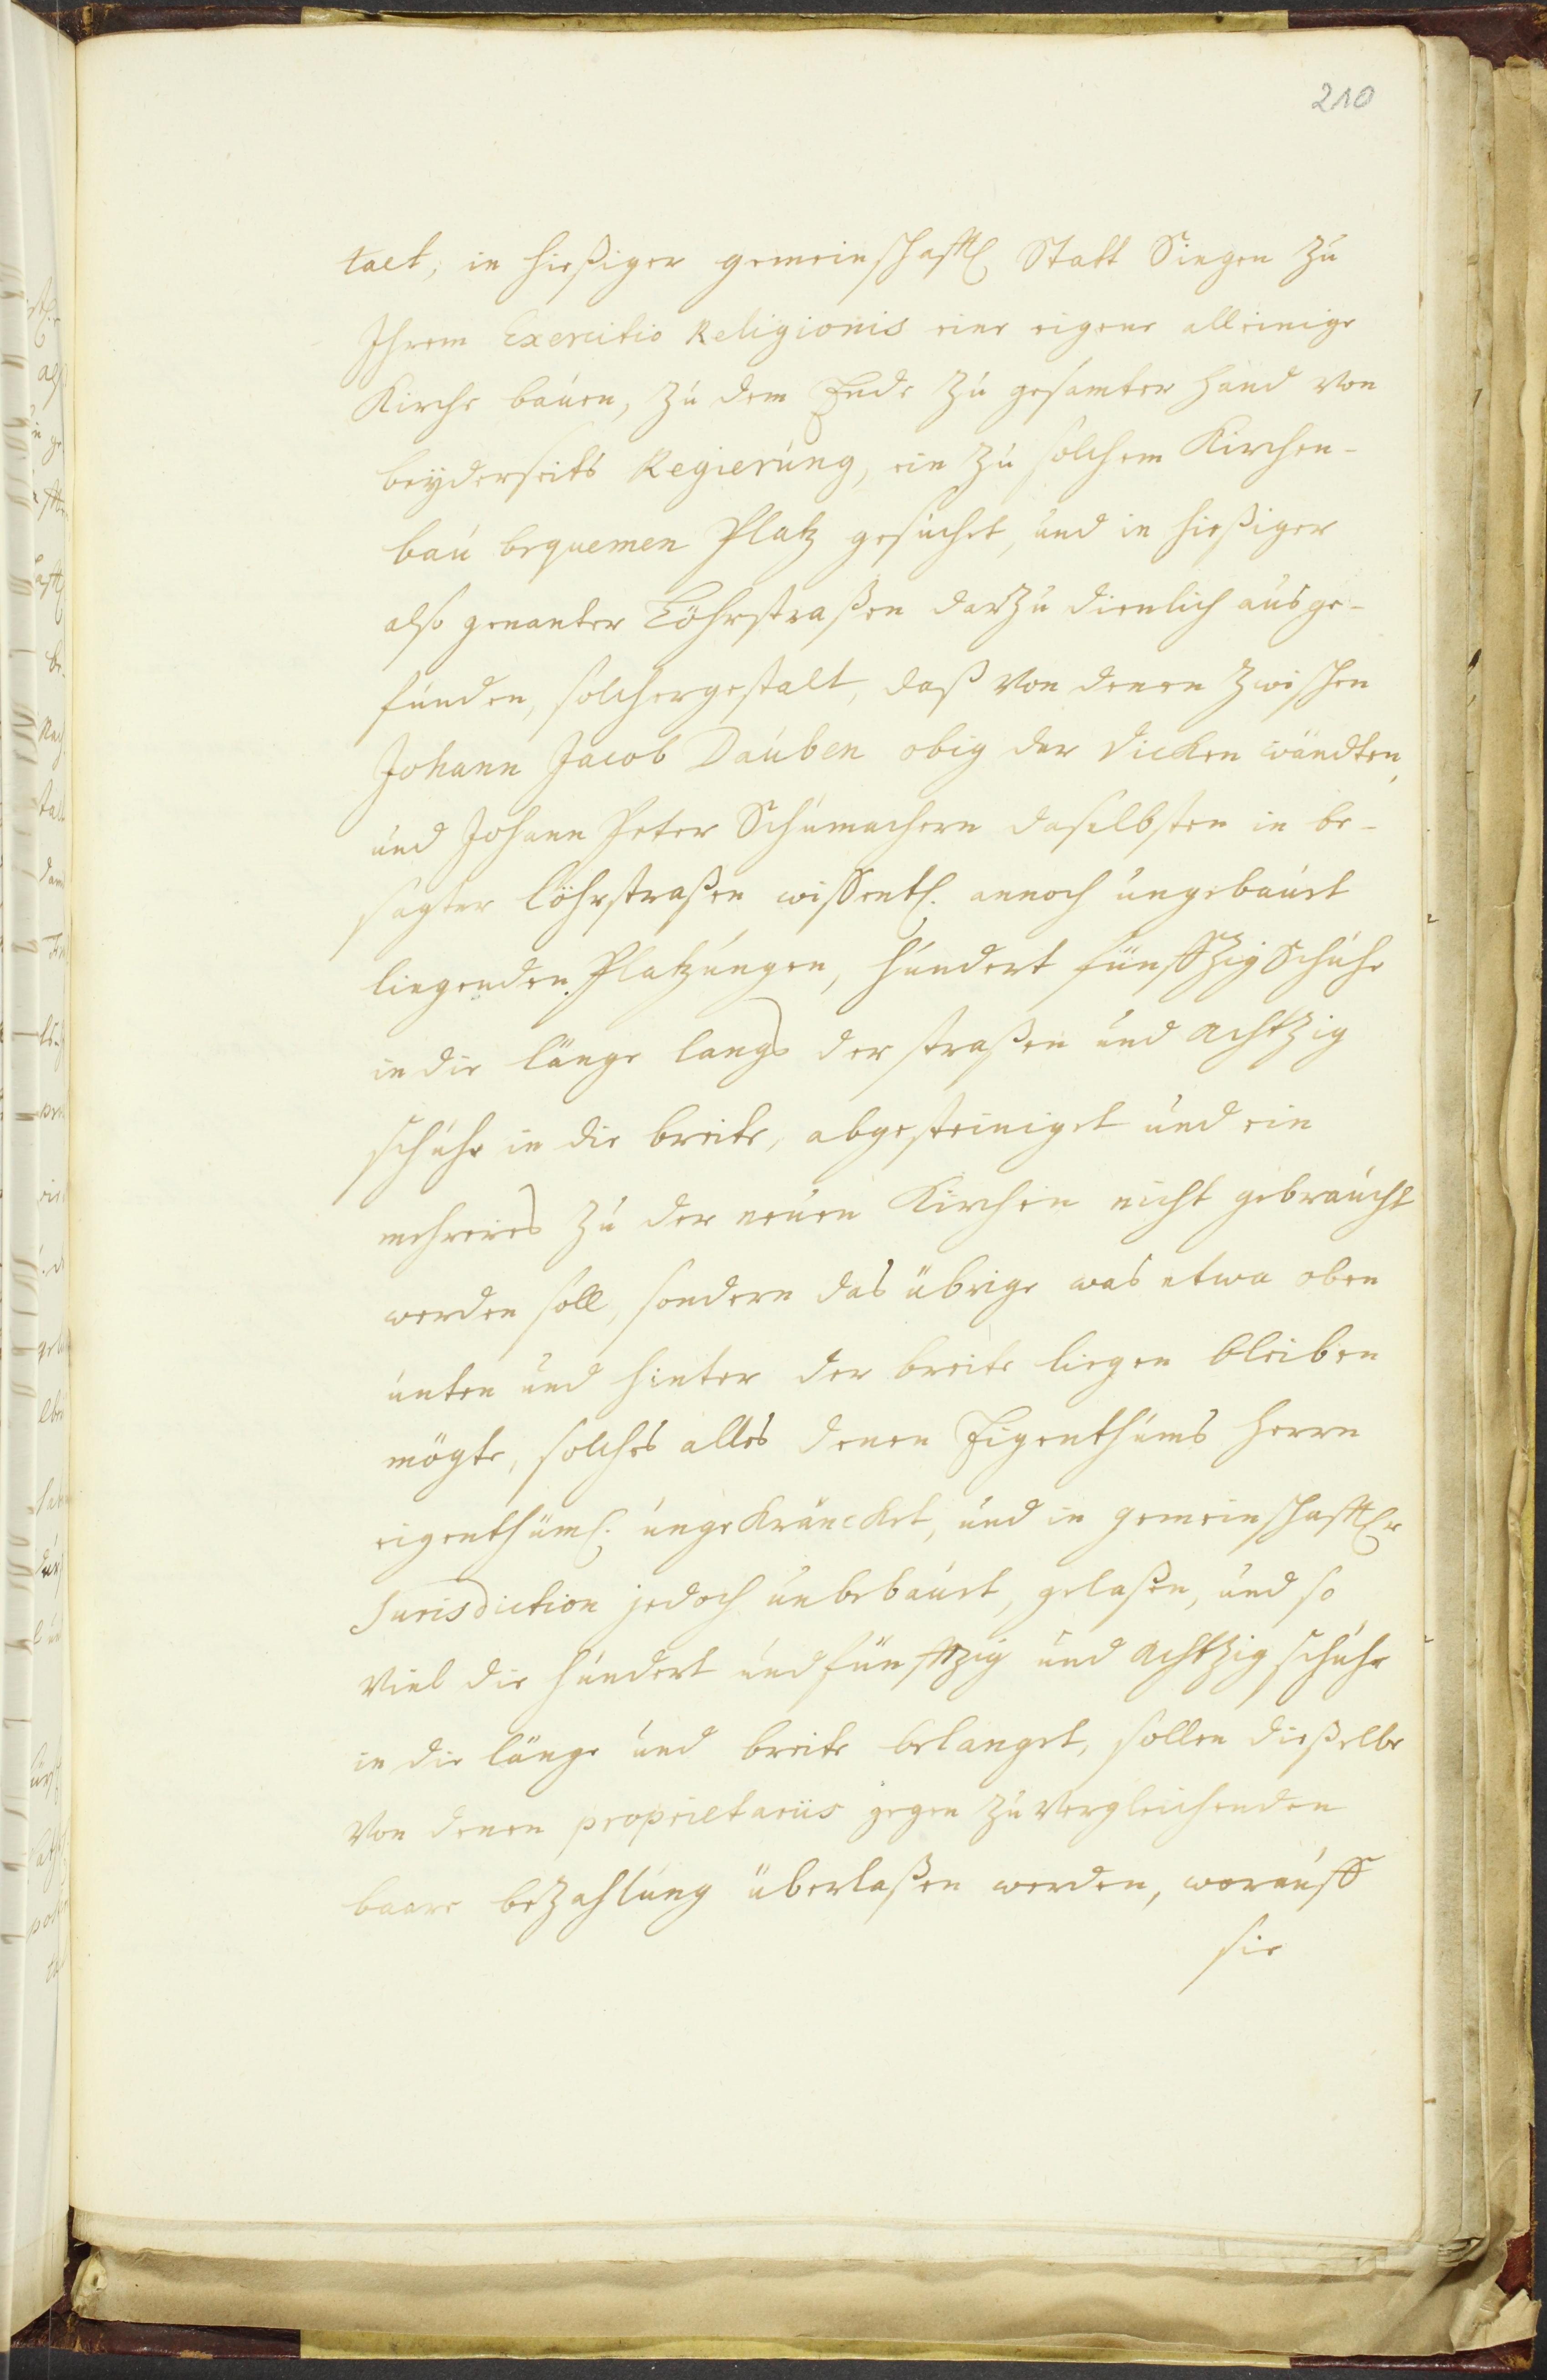 210
tact, in hießiger gemeinschafftl Statt Siegen zu
Ihrem Exercitio Religionis eine eigene alleinige
Kirche bauen, zu dem Ende zu gesamter hand von
beyderseits Regierung, ein zu solchem Kirchen-
bau bequemen Platz gesuchet, und in hießiger
also genanter Löhrstraßen darzu dienlich ausge-
funden, solchergestalt, daß von denen zwischen
Johann Jacob Dauben obig der dicken wändten,
und Johann Peter Schumachern daselbsten in be-
sagter Löhrstraßen wissentl. annoch ungebauet
liegenden Platzungen, hundert fünffzig Schuhe
in die länge langs der straßen und achtzig
schuhe in die breite, abgesteiniget und ein
mehreres zu der neuen Kirchen nicht gebraucht
werden soll, sondern das übrige was etwa oben
unten und hinter der breite liegen bleiben
mögte, solches alles denen Eigenthums herrn
eigenthüml. ungekräncket, und in gemeinschafftler
Jurisdiction jedoch unbebauet, gelaßen, und so
viel die hundert und fünffzig und achtzig schuhe
in die länge und breite belanget, sollen dießelbe
von denen proprietariis gegen zu vergleichenden
baare bezahlung überlaßen werden, worauff
sie